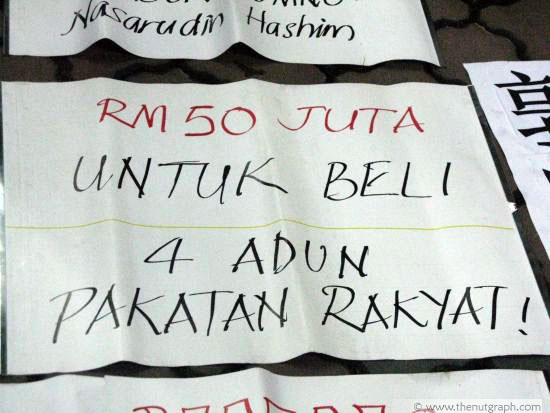 Nasarudin Hashim
RM 50 JUTA
UNTUK BELI
4 ADUN
PAKATAN RAKYAT!
© www.thenutgraph.com